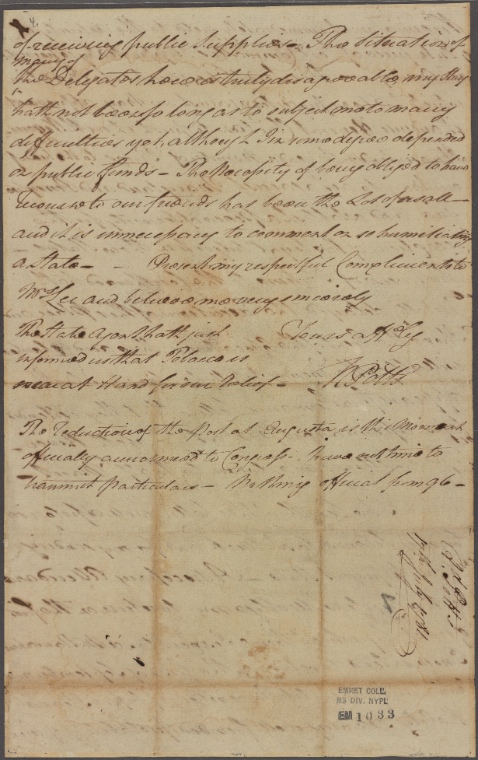 4.
of receiving public supplies – The situation of
many of
the Delegates have certainly disagreeable, my Stay
hath not been so long as to subject me to many
difficulties yet although I in no degree depended
on public funds – The Necessity of being obliged to have
recourse to our friends has been the Lot of us all –
and it is unnecessary to comment on so humiliating
a State – – Present my respectful Compliments to
Mrs Lee and believe me very sincerely
The State Agent hath just
Yours aff ly
informed us that Tobacco is
near at Hand for our Relief –
R Potts
The reduction of the Post at Augusta is this Moment
officially announced to Congress. I have not time to
transmit particulars – Nothing official from 96 –
R. Potts
July 1781
EMMET COLL.
MS DIV. NYPL
EM 1033